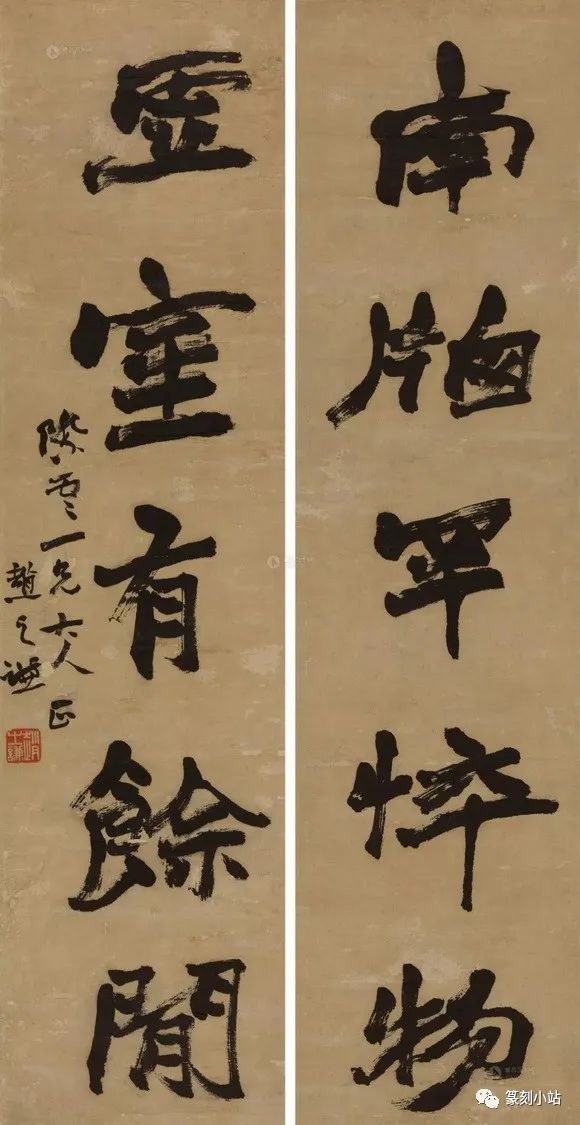 南牕罕悴物
虛室有餘閒
雲一兄大人正
趙之謙
趙之謙
篆刻小站